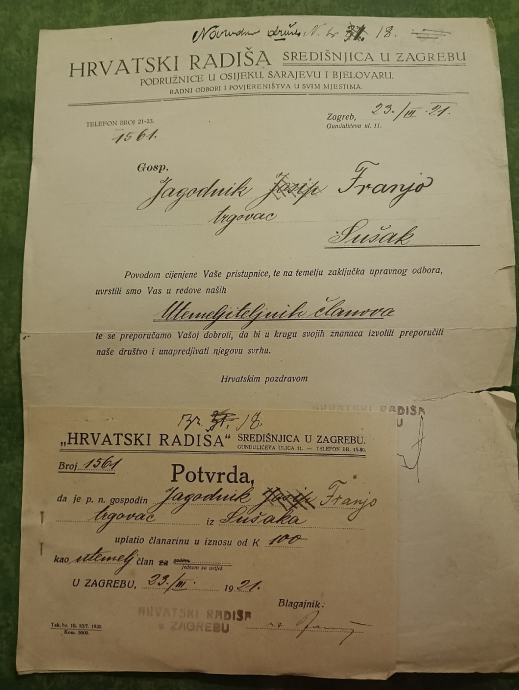 Narodnu druš. N. br 31. 18.
HRVATSKI RADIŠA SREDIŠNJICA U ZAGREBU
PODRUŽNICE U OSIJEKU, SARAJEVU I BJELOVARU.
RADNI ODBORI I POVJERENIŠTVA U SVIM MJESTIMA.
TELEFON BROJ 21-23.
1561.
Zagreb, 23./III. 21.
Gundulićeva ul. 11.
Gosp.
Jagodnik Josip Franjo
trgovac
Sušak
Povodom cijenjene Vaše pristupnice, te na temelju zaključka upravnog odbora,
uvrstili smo Vas u redove naših
Utemeljiteljnih članova
te se preporučamo Vašoj dobroti, da bi u krugu svojih znanaca izvolili preporučiti
naše društvo i unapredjivati njegovu svrhu.
Hrvatskim pozdravom
HRVATSKI RADIŠA
br. 31. 18.
„HRVATSKI RADIŠA" SREDIŠNJICA U ZAGREBU.
GUNDULIĆEVA ULICA 11. — TELEFON BR.
Broj 1561
Potvrda,
da je p. n. gospodin Jagodnik Josip Franjo
trgovac iz Sušaka
uplatio članarinu u iznosu od K 100
kao utemelj član za
U ZAGREBU, 23./III. 1921.
Blagajnik:
HRVATSKI RADIŠA
U ZAGREBU